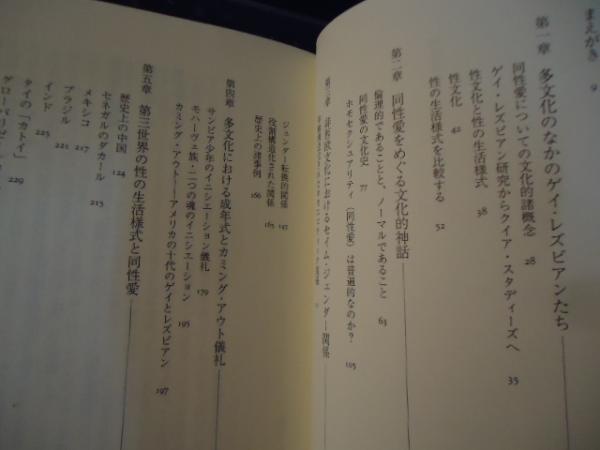 まえがき 9
第一章 多文化のなかのゲイ・レズビアンたち
同性愛についての文化的諸概念 28
ゲイ・レズビアン研究からクイア・スタディーズへ 35
性文化と性の生活様式 38
性文化 42
性の生活様式を比較する 52
第二章 同性愛をめぐる文化的神話
倫理的であることと、ノーマルであること 63
同性愛の文化史 77
ホモセクシュアリティ(同性愛)は普遍的なのか? 105
第三章 非西欧文化におけるセイム・ジェンダー関係
ジェンダー転換的関係 147
役割構造化された関係 165
歴史上の諸事例 166
第四章 多文化における成年式とカミング・アウト儀礼
サンビア少年のイニシエーション儀礼 179
モハーヴェ族・二つの魂のイニシエーション 195
カミング・アウト――アメリカの十代のゲイとレズビアン 197
第五章 第三世界の性の生活様式と同性愛
歴史上の中国 124
セネガルのダカール 215
メキシコ 217
ブラジル 221
インド 225
タイの「カトイ」 229